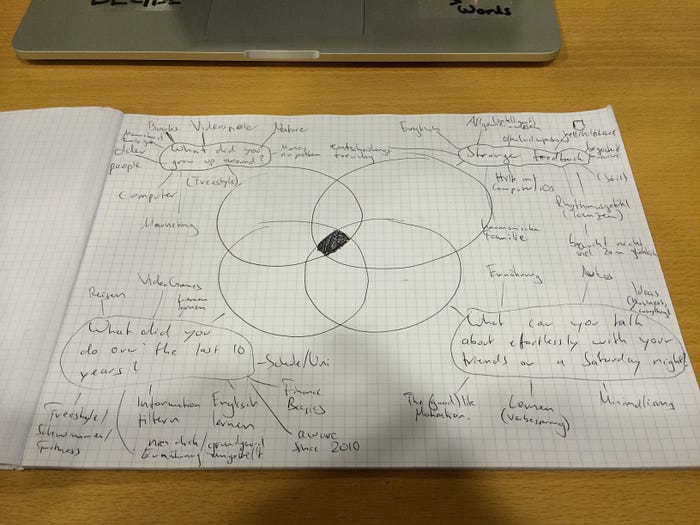 Words
Books Videospiele Nature
older
people
What did you
grow up around?
(Freestyle)
Computer
Marketing
Englisch
Stranger feedback
Hilfe mit
Computer/iOS
(Seil)
Rhythmusgefühl
(Tanzen)
braucht nicht
viel zum glücklich
harmonische
Familie
Reisen
VideoGames
Lernen
lernen
What did you
do over the last 10
years?
Schule/Uni
Finance
Basics
aware
since 2010
Freestyle/
Schwimmen/
Fitness
Information
filtern
Englisch
lernen
Ernährung umgestellt
Ernährung
Autos
Ideas
(business,
everything)
What can you talk
about effortlessly with your
friends on a Saturday night?
The (good) life
Motivation
Lernen
(verbesserung)
Minimalismus